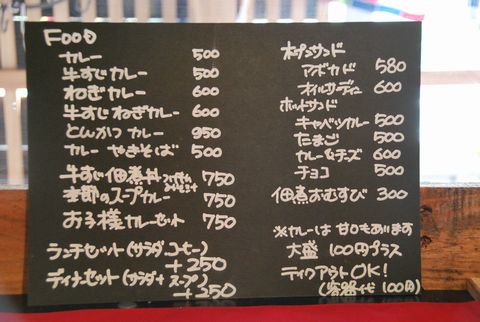 FOOD
カレー 500
牛すじカレー 500
ねぎカレー 600
牛すじねぎカレー 600
とんかつカレー 950
カレーやきそば 500
牛すじ佃煮丼 750
季節のスープカレー 750
お子様カレーセット 750
ランチセット(サラダ、コーヒー)
+250
ディナーセット(サラダ+スープ)
+250
オープンサンド
アボカド 580
オイルサーディン 600
ホットサンド
キャベツカレー 500
たまご 500
カレー&チーズ 600
チョコ 500
佃煮おむすび 300
※カレーは甘口もあります
大盛 100円プラス
テイクアウトOK!
(容器代100円)